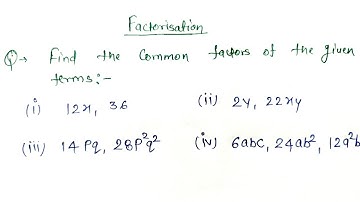 Factorisation
Q→ Find the Common factors of the given
terms:-
(i) 12x, 36 (ii) 2y, 22xy
(iii) 14Pq, 28P²q² (iv) 6abc, 24ab², 12a²b